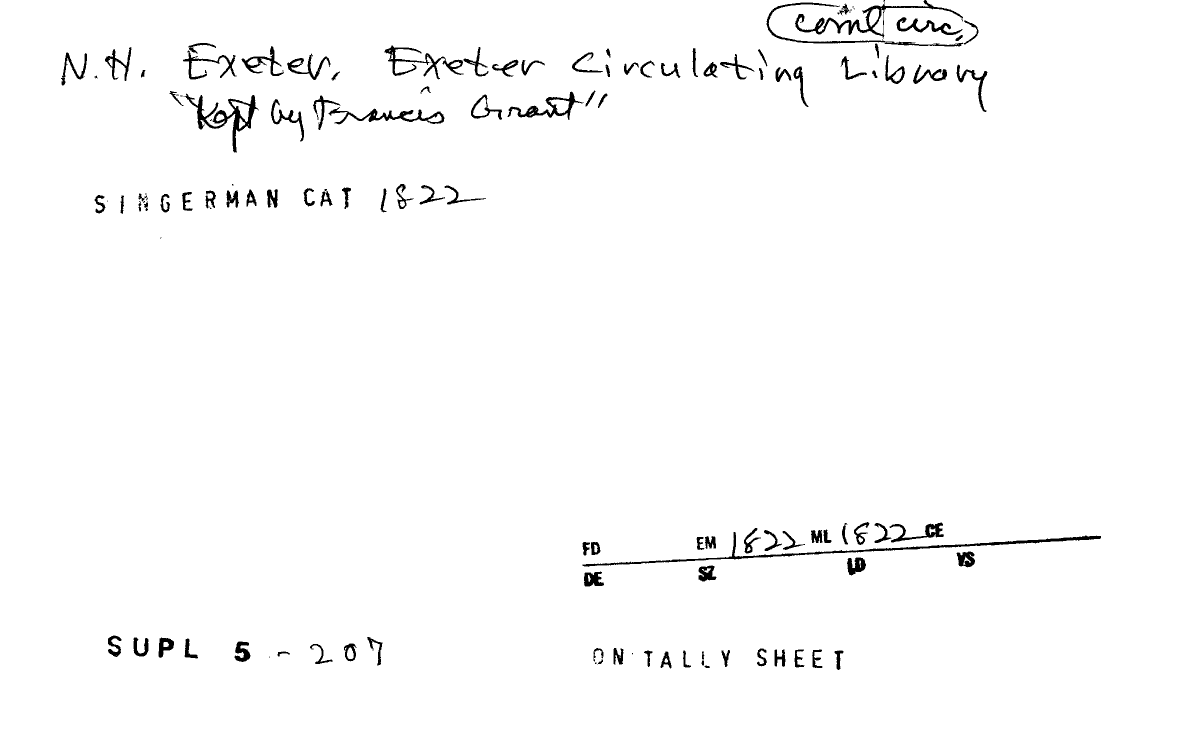 com'l circ.
N.H. Exeter. Exeter Circulating Library
"Kept by Francis Grant"
SINGERMAN CAT 1822
FD EM 1822 ML 1822 CE
DE SZ LD YS
SUPL 5 - 207
ON TALLY SHEET